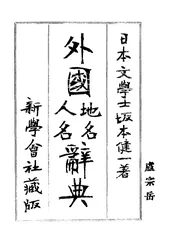 日本文學士坂本健一著
外國
地名
人名
辭典
新學會社藏版
盧宗岳